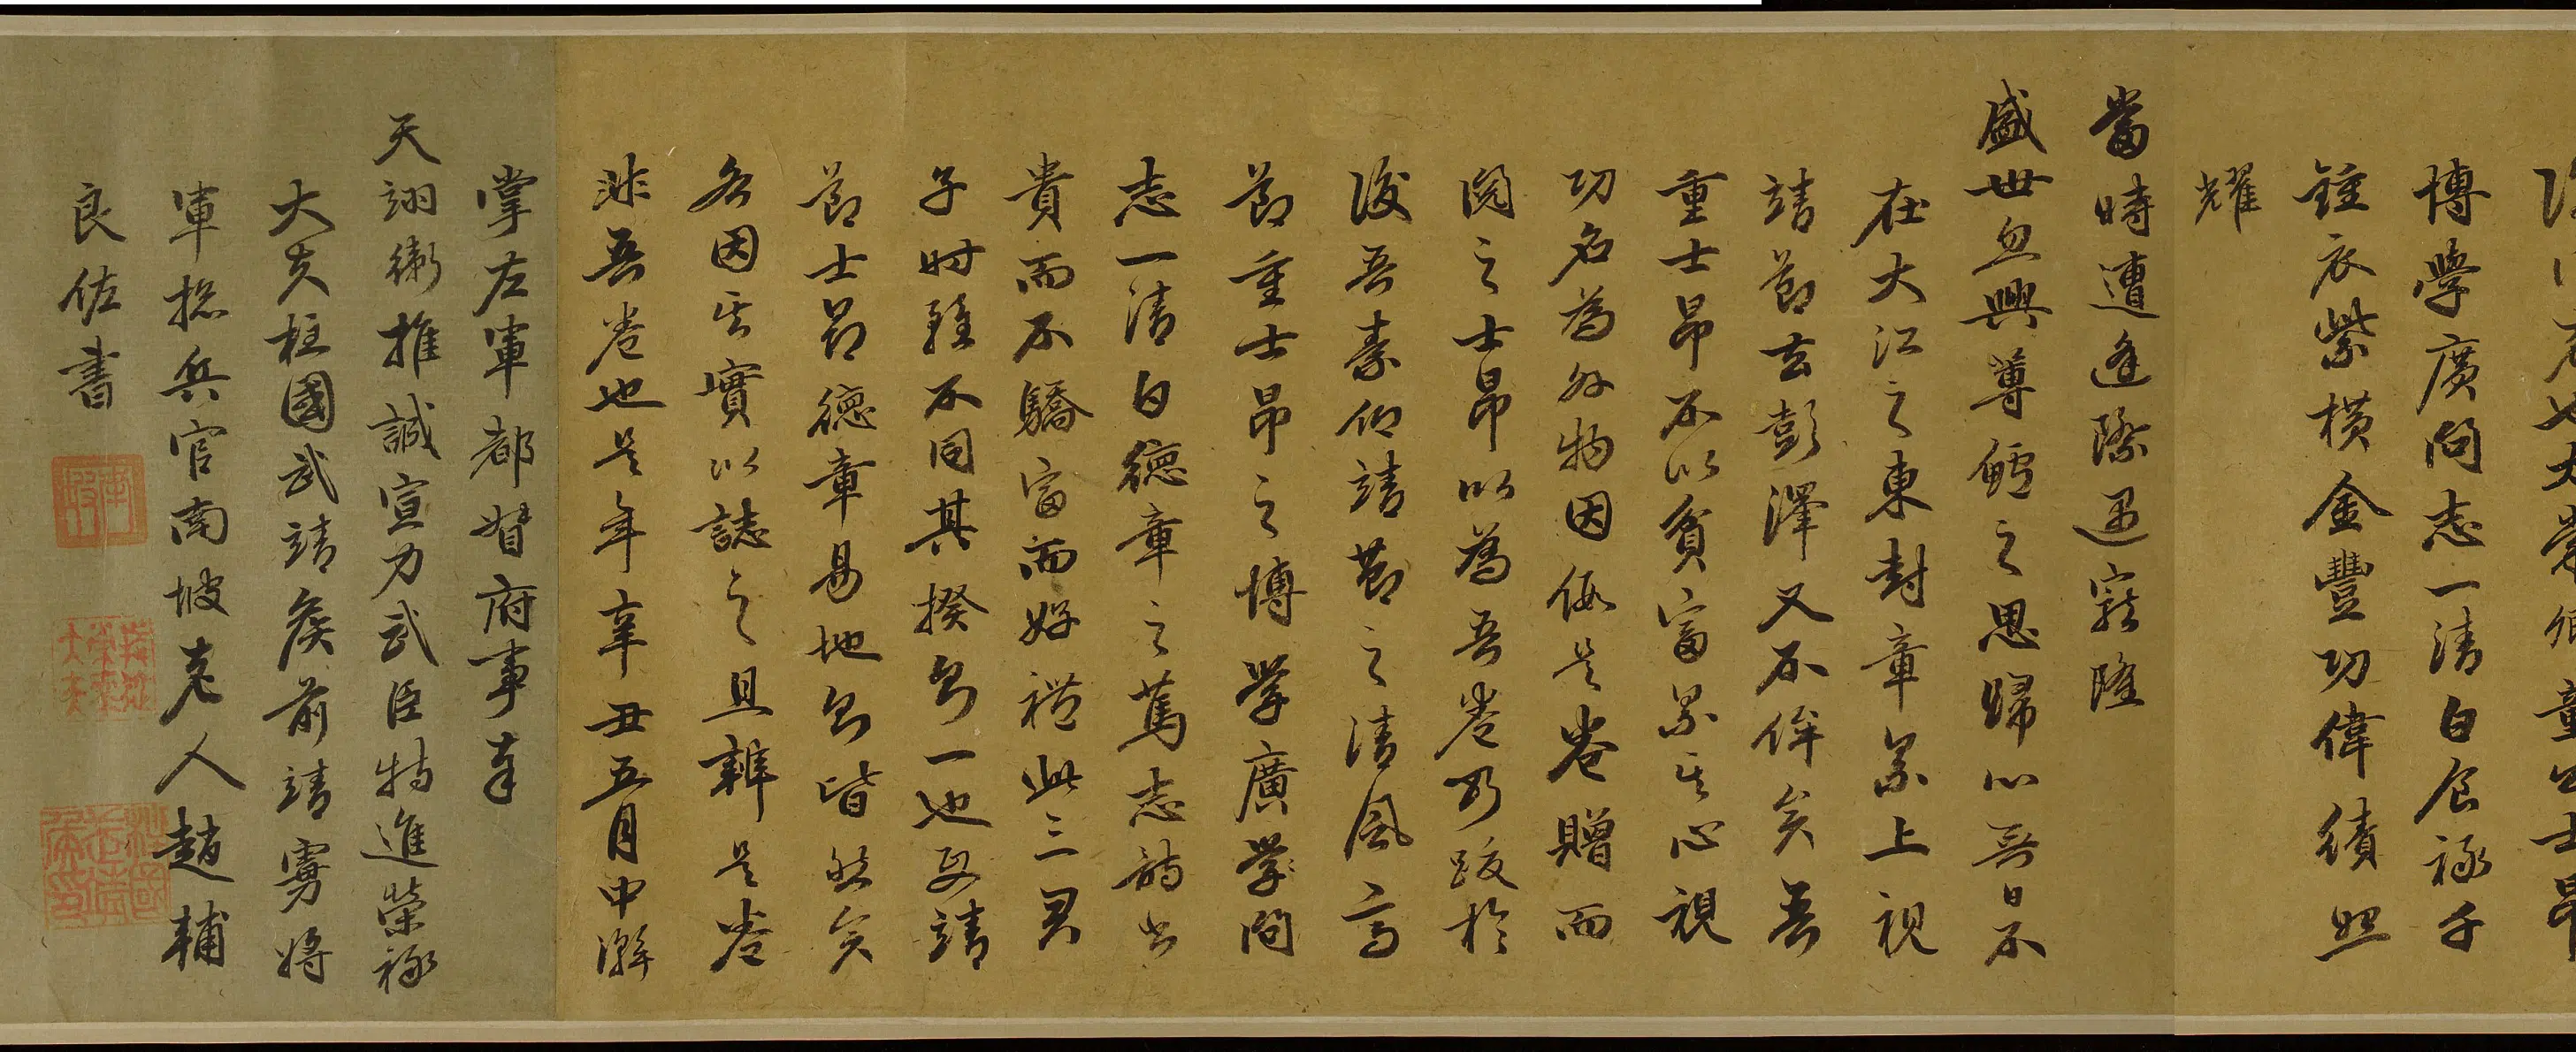 博學廣問志一清白食祿千
鍾衣紫橫金豐功偉績照
耀
當時遭逢際遇寵隆
盛世忽興蓴鱸之思歸心無日不
在大江之東封章累上視
靖節去彭澤又不侔矣吾
重士昂不以貧富累其心視
功名為外物因俾是卷贈而
閱之士昂以為吾卷乃跋於
後吾素仰靖節之清風高
節重士昂之博學廣學問
志一清白德章之篤志詩書
貴而不驕富而好禮此三君
子時雖不同其揆則一也使靖
節士昂德章易地則皆然矣
吾因其實以誌之且辨是卷
非吾卷也是年辛丑五月中澣
掌左軍都督府事奉
天翊衛推誠宣力武臣特進榮祿
大夫柱國武靖侯前靖虜將
軍總兵官南坡老人趙輔
良佐書